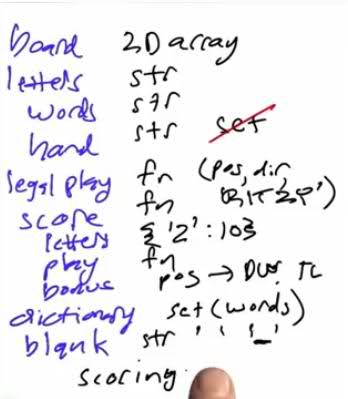 board 2D array
letters str
words str
hand str set
legal play fn (pos, dir,
score fn
letters {'Z':10}
play fn
bonus pos → DW, TL
dictionary set(words)
blank str ' ' '_'
scoring